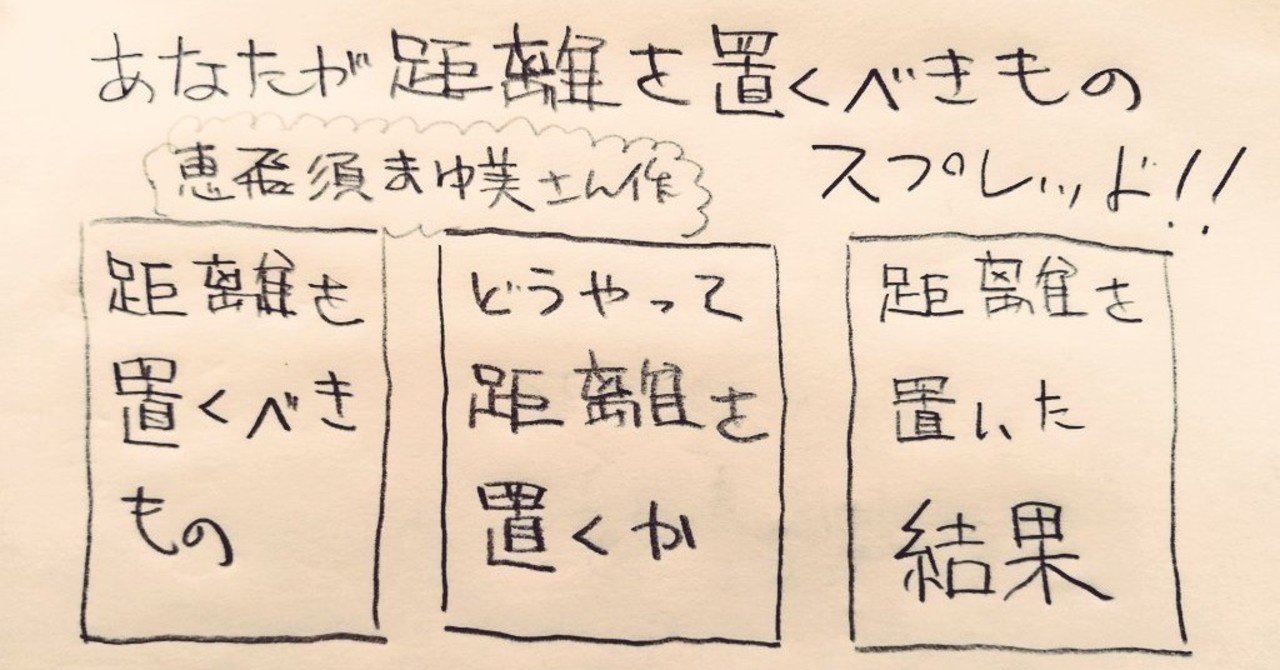 あなたが距離を置くべきもの
スプレッド!!
恵飛須まゆ美さん作
距離を
置くべき
もの
どうやって
距離を
置くか
距離を
置いた
結果